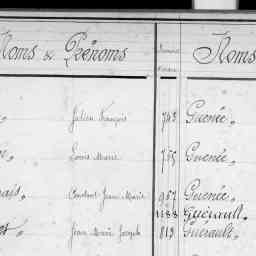 Noms & Prénoms Noms
" Julien François 743 Guenée "
Louis Marie 755 Guenée "
Constant Jean Marie 957 Guenée "
1188 Guérault "
Jean Marie Joseph 813 Guérault "